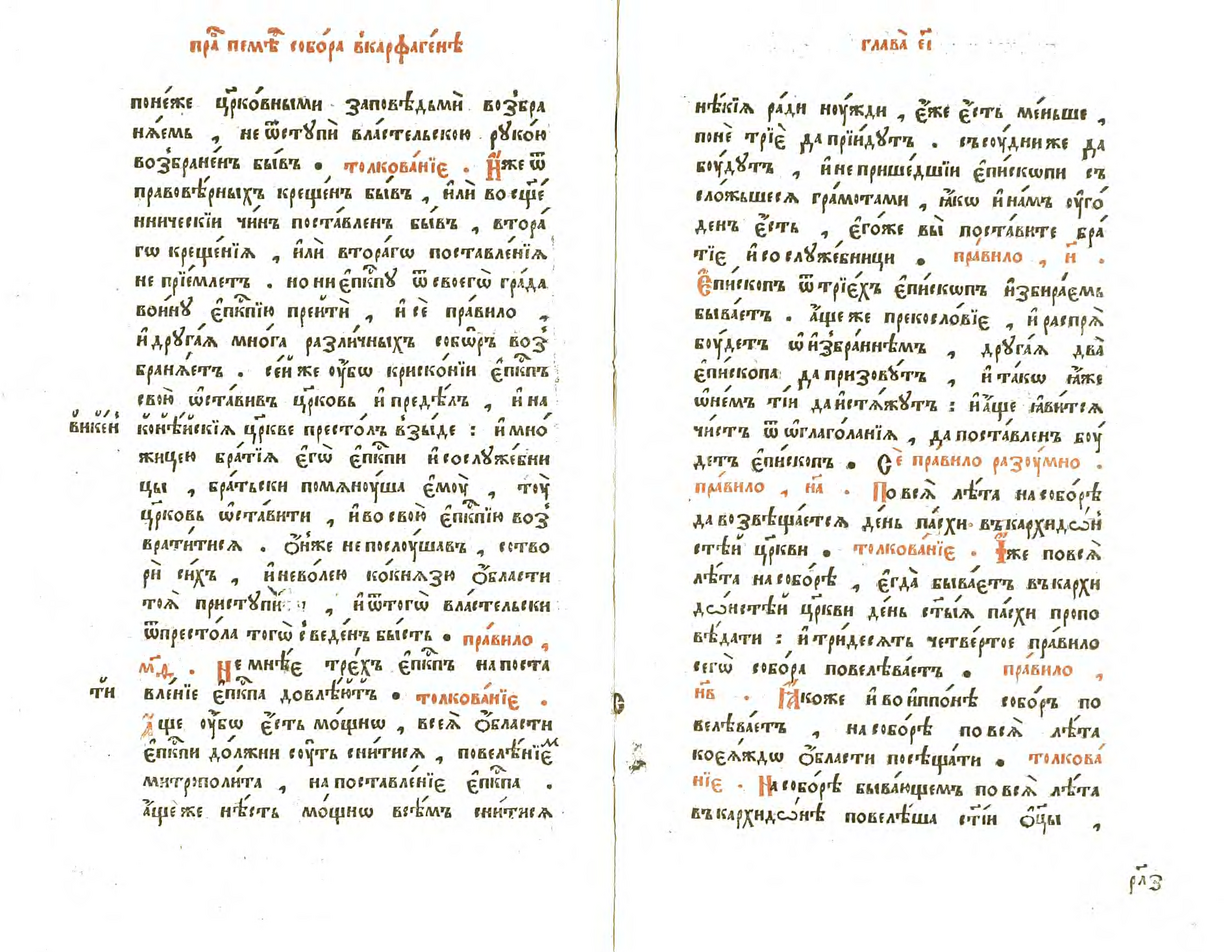 пра́в помѣ́с собо́ра в̾карѳаге́нѣ
поне́же цр҃ко́вными заповѣдьмѝ возбра
ня́емь , не ѿступѝ вла́стельскою руко́ю
возбране́нъ бы́въ . толкова́нїе . И҆́же ѿ
правовѣ́рныхъ креще́нъ бы́въ , и҆лѝ во сщ҃е
нническїи чи́нъ поста́вленъ бы́въ , втора́
гѡ креще́нїѧ , и҆лѝ втора́гѡ поставле́нїѧ
не прїе́млетъ . но ни е҆пⷭ҇кпу ѿ своегѡ̀ гра́да
во и҆́ну е҆пⷭ҇кпїю прейтѝ , и҆ сѐ пра́вило ,
и҆ друга́ѧ мно́га разли́чныхъ собѡ́ръ воз̾
бранѧ́етъ . се́й же оу҆́бѡ криско́нїи е҆пⷭ҇кпъ
свою̀ ѡ҆ста́вивъ цр҃ковь и҆ предѣ́лъ , и҆ на
вике́и
коне́йскїѧ цр҃кве престо́лъ взы́де : и҆ мно́
жицею бра́тїѧ е҆гѡ̀ е҆пⷭ҇кпи и҆ сослуже́бни
цы , бра́тьски помѧноу́ша е҆моу̀ , тоу̀
цр҃ковь ѡ҆ста́вити , и҆ во свою̀ е҆пⷭ҇кпїю воз̾
врати́тисѧ . Ѻ҆́нже не послоу́шавъ , сотво
рѝ си́хъ , и҆ нево́лею ко кнѧ́зю ѻ҆́бласти
тоѧ̀ приступѝ , и҆ ѿ тогѡ̀ вла́стельски
ѿ престо́ла тогѡ̀ сведе́нъ бы́сть . пра́вило ,
м҃д . Не мнѣ́е тре́хъ е҆пⷭ҇кпъ на поста
ти
вле́нїе е҆пⷭ҇кпа довлѣ́ютъ . толкова́нїе .
А҆́ще оу҆́бѡ е҆́сть мо́щнѡ , всеѧ̀ ѻ҆́бласти
е҆пⷭ҇кпи до́лжни соу́ть сни́тисѧ , повелѣ́нїемⷨ
митрополи́та , на поставле́нїе е҆пⷭ҇кпа .
а҆́ще же нѣ́сть мо́щнѡ всѣ́мъ сни́тисѧ
глава̀ є҃і
нѣ́кїѧ ра́ди ноу́жди , е҆́же е҆́сть ме́ньше ,
понѐ трїѐ да прїи́дутъ . съсоу́дни же да
боу́дутъ , и҆ не прише́дшїи е҆пи́скѡпи съ
сло́жьшесѧ гра́мотами , ꙗ҆́кѡ и҆ на́мъ оу҆го́
денъ е҆́сть , е҆го́же вы̀ поста́вите бра́
тїе и҆ со служе́бници . пра́вило , н҃ .
Е҆пи́скопъ ѿ трїе́хъ е҆пи́скѡпъ и҆збира́емь
быва́етъ . а҆́ще же прекосло́вїе , и҆ ра́спрѧ
боу́детъ ѡ҆ и҆збра́ннѣмъ , друга́ѧ два̀
е҆пи́скопа да призову́тъ , и҆ та́кѡ ꙗ҆́же
ѡ҆ не́мъ ті́и да и҆стѧ́жутъ : и҆ а҆́ще ꙗ҆ви́тсѧ
чи́стъ ѿ ѡ҆глаго́ланїѧ , да поста́вленъ боу́
детъ е҆пи́скопъ . Сѐ пра́вило разоу́мно .
пра́вило , н҃а . По всѧ̀ лѣ́та на собо́рѣ
да возвѣща́етсѧ де́нь па́схи въ кархидѡ́н
стѣ́й цр҃кви . толкова́нїе . І҆́же по всѧ̀
лѣ́та на собо́рѣ , е҆гда̀ быва́етъ въ кархи
дѡ́нстѣй цр҃кви де́нь ст҃ы́ѧ па́схи пропо
вѣ́дати : и҆ три́десѧть четве́ртое пра́вило
сегѡ̀ собо́ра повелѣва́етъ . пра́вило ,
н҃в . Ꙗ҆́коже и҆ во и҆ппо́нѣ собо́ръ по
велѣва́етъ , на собо́рѣ по всѧ̀ лѣ́та
коеѧ́ждѡ ѻ҆́бласти посѣща́ти . толкова́
нїе . На собо́рѣ быва́ющемъ по всѧ̀ лѣ́та
въ кархидѡ́нѣ повелѣ́ша ст҃і́и ѻ҆ц҃ы̀ ,
рл҃з